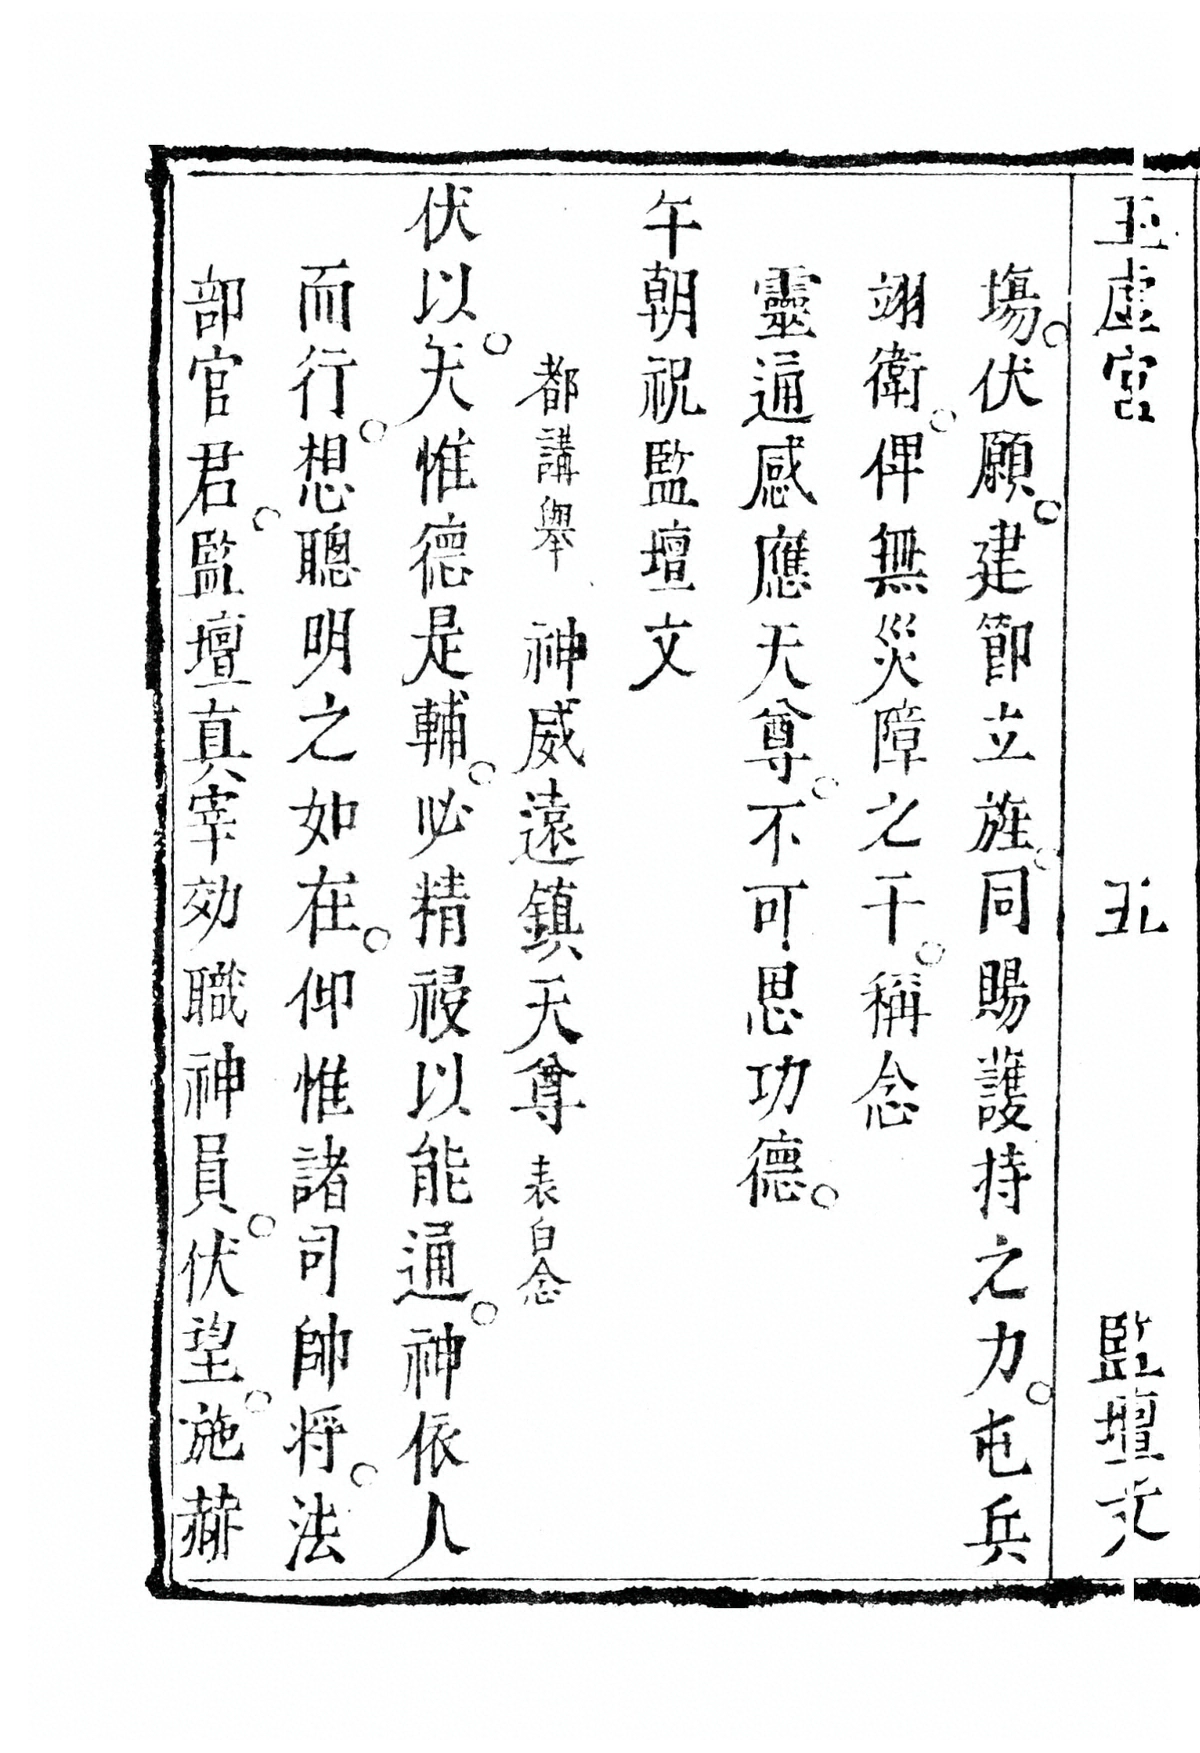 玉虛宮 五 監壇文
塲。伏願。建節立旌。同賜護持之力。屯兵
翊衛。俾無災障之干。稱念
靈通感應天尊。不可思功德。
午朝祝監壇文
都講舉 神威遠鎮天尊 表白念
伏以。天惟德是輔。必精祲以能通。神依人
而行。想聰明之如在。仰惟諸司帥将。法
部官君。監壇真宰効職神員。伏望。施赫